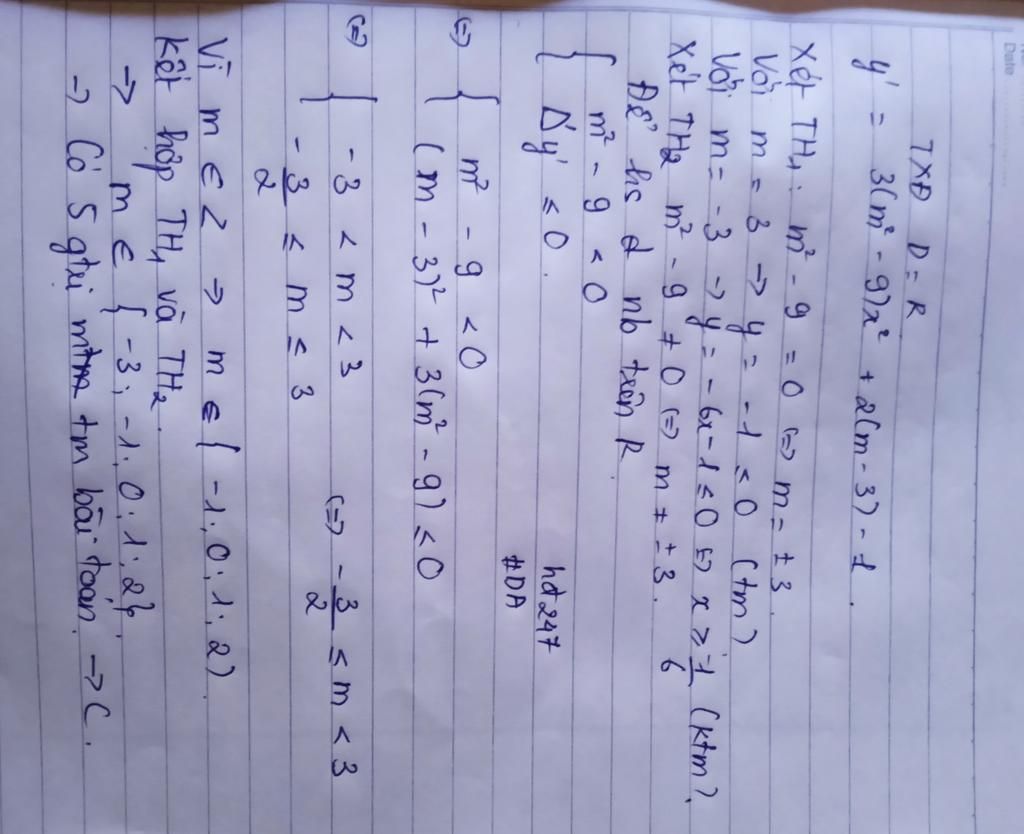 Date
TXĐ D = R
y' = 3(m² - 9)x² + 2(m - 3) - 1.
Xét TH₁ : m² - 9 = 0 (=) m = ± 3.
Với m = 3 → y = -1 ≤ 0 (tm)
Với m = -3 → y = - 6x - 1 ≤ 0 (=) x ≥ -1/6 (ktm).
Xét TH₂ m² - 9 ≠ 0 (=) m ≠ ± 3.
Để hs d nb trên R.
{ m² - 9 < 0
{ Δ'y' ≤ 0.
hd 247
#DA
(=) { m² - 9 < 0
{ (m - 3)² + 3(m² - 9) ≤ 0
(=) { -3 < m < 3
{ -3/2 ≤ m ≤ 3
(=) -3/2 ≤ m < 3
Vì m ∈ Z → m ∈ { -1; 0; 1; 2}.
Kết hợp TH₁ và TH₂.
→ m ∈ { -3; -1; 0; 1; 2}.
→ Có 5 gtrị tm bài toán. → C.